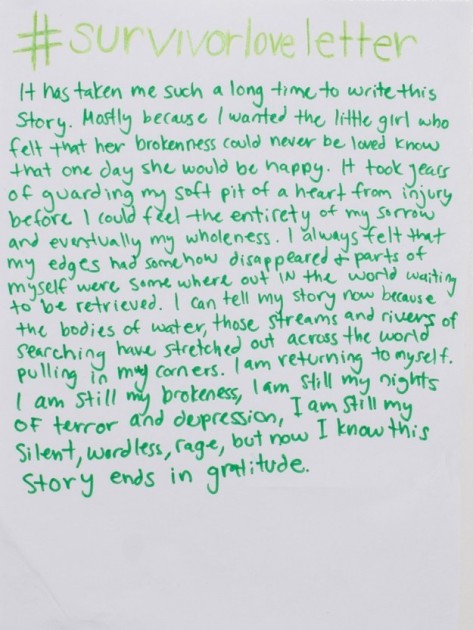 #survivorloveletter
It has taken me such a long time to write this
story. Mostly because I wanted the little girl who
felt that her brokenness could never be loved know
that one day she would be happy. It took years
of guarding my soft pit of a heart from injury
before I could feel the entirety of my sorrow
and eventually my wholeness. I always felt that
my edges had somehow disappeared & parts of
myself were some where out in the world waiting
to be retrieved. I can tell my story now because
the bodies of water, those streams and rivers of
searching have stretched out across the world
pulling in my corners. I am returning to myself.
I am still my brokeness, I am still my nights
of terror and depression, I am still my
silent, wordless, rage, but now I know this
story ends in gratitude.